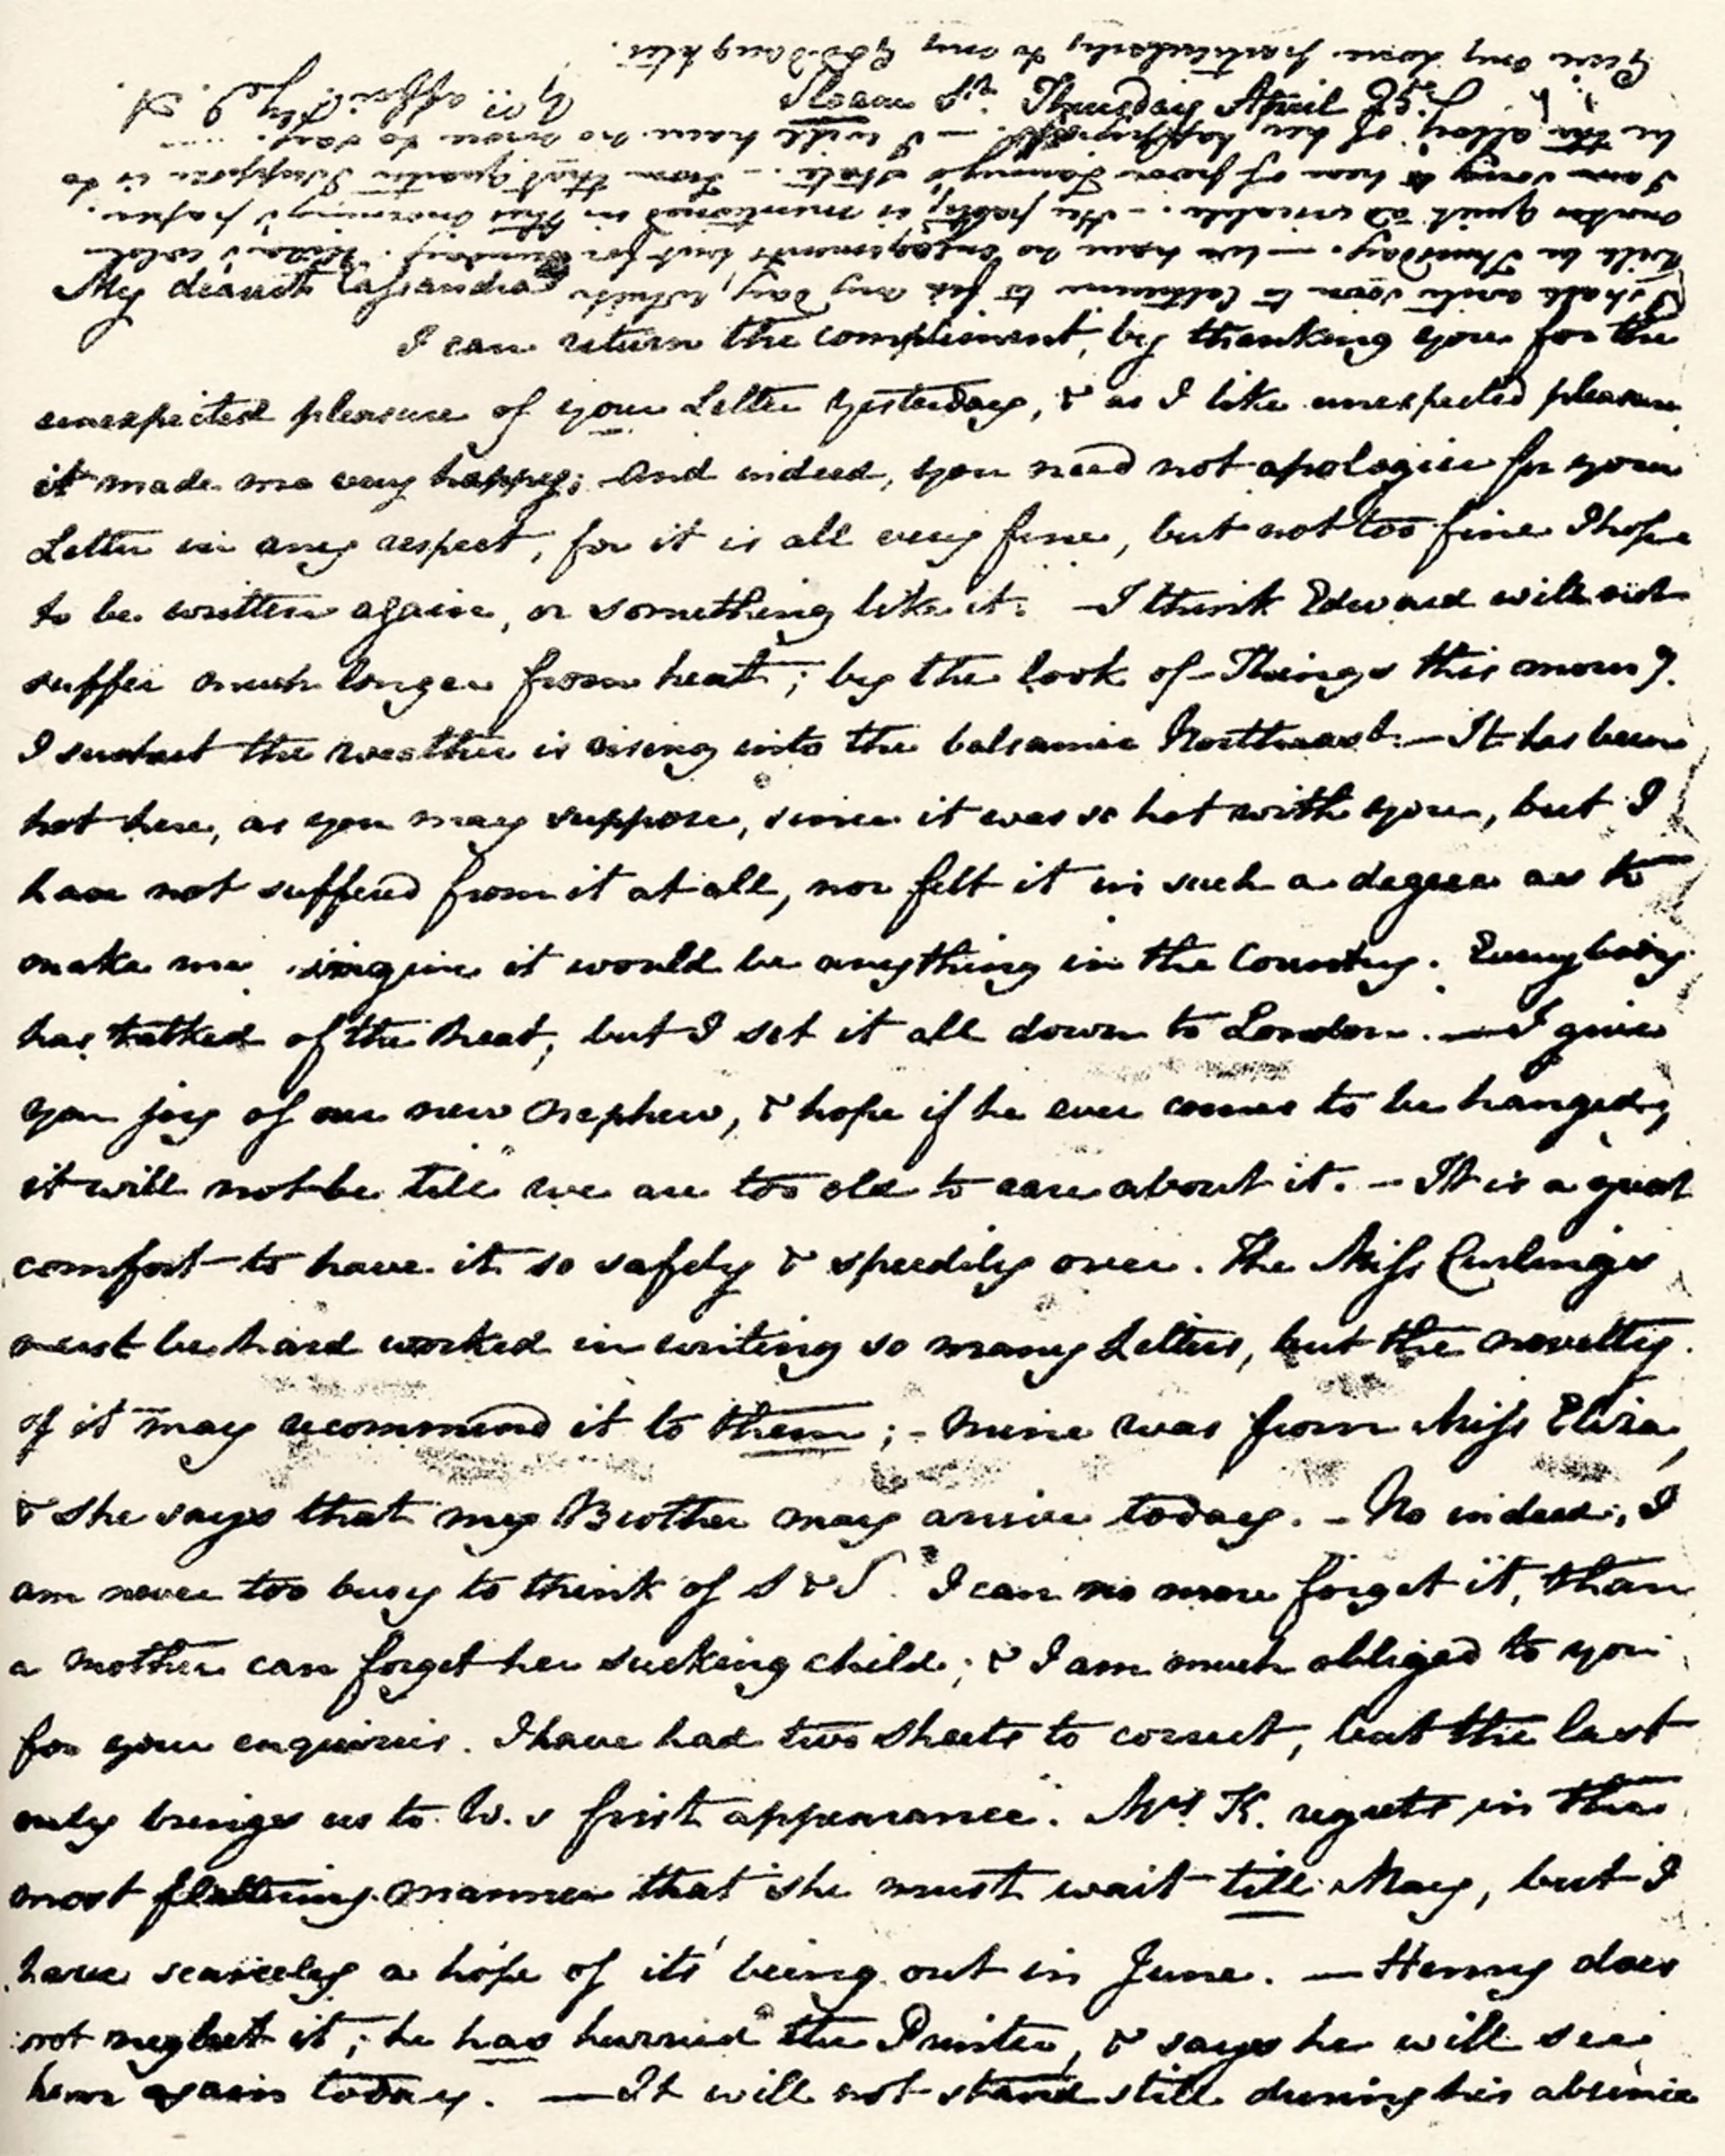 Sloane St. Thursday April 25
My dearest Cassandra
I can return the compliment by thanking you for the
unexpected pleasure of your Letter yesterday, & as I like unexpected pleasure,
it made me very happy; And indeed, you need not apologise for your
Letter in any respect, for it is all very fine, but not too fine I hope
to be written again, or something like it. — I think Edward will not
suffer much longer from heat; by the look of Things this morng.
I suspect the weather is rising into the balsamic Northeast. — It has been
hot here, as you may suppose, since it was so hot with you, but I
have not suffered from it at all, nor felt it in such a degree as to
make me imagine it would be anything in the Country. Everybody
has talked of the heat, but I set it all down to London. — I give
you joy of our new nephew, & hope if he ever comes to be hanged,
it will not be till we are too old to care about it. — It is a great
comfort to have it so safely & speedily over. The Miss Curlings
must be hard worked in writing so many Letters, but the novelty
of it may recommend it to them; – Mine was from Miss Eliza,
& she says that my Brother may arrive today. – No indeed, I
am never too busy to think of S & S. I can no more forget it, than
a mother can forget her sucking child; & I am much obliged to you
for your enquiries. I have had two sheets to correct, but the last
only brings us to W.s first appearance. Mrs. K. regrets in the
most flattering manner that she must wait till May, but I
have scarcely a hope of its' being out in June. — Henry does
not neglect it; he has hurried the Printer, & says he will see
him again today. — It will not stand still during his absence
I shall write soon to Catherine to fix my day, which
will be Thursday. — We have no engagements but for Sunday. Eliza's cold
makes quiet adviseable. – Her party is mentioned in this morning's paper.
I am sorry to hear of poor Fanny's state. – From that quarter I suppose is to
be the alloy of her happiness. — I will have no more to say. —
Yrs. affecly J. A.
Give my love particularly to my God-daughter.